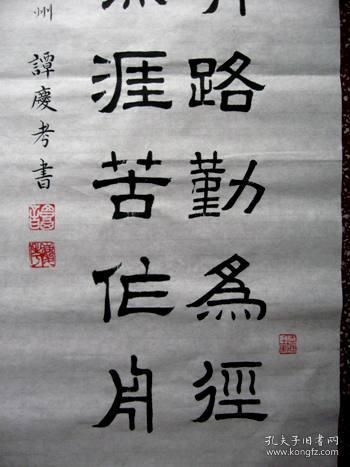 路勤爲徑
涯苦作舟
州 譚慶考書
孔夫子旧书网
www.kongfz.com